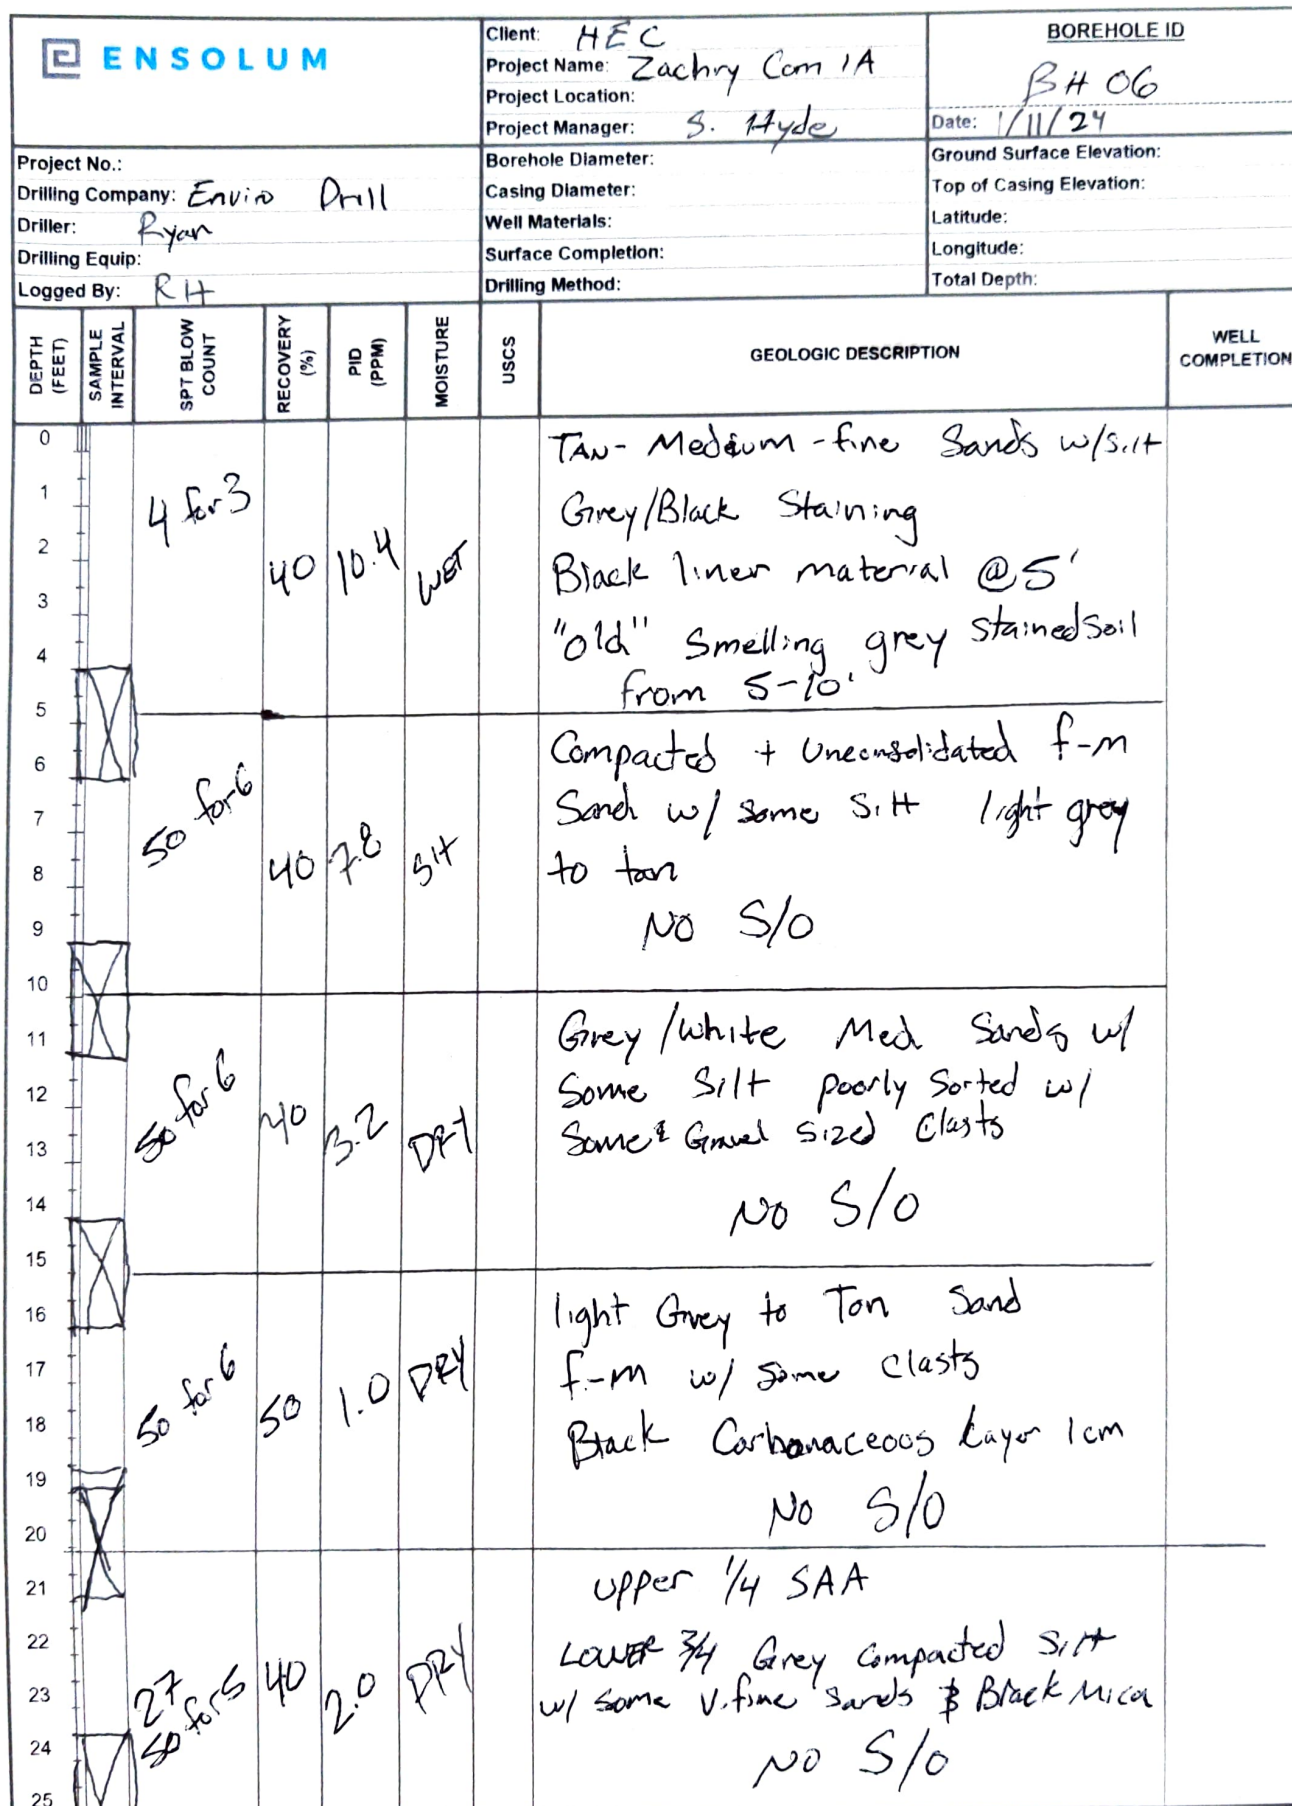 ENSOLUM
Client: HEC
Project Name: Zachry Com 1A
Project Location:
Project Manager: S. Hyde
BOREHOLE ID
BH 06
Date: 1/11/24
Project No.:
Drilling Company: Enviro Drill
Driller: Ryan
Drilling Equip:
Logged By: RH
Borehole Diameter:
Casing Diameter:
Well Materials:
Surface Completion:
Drilling Method:
Ground Surface Elevation:
Top of Casing Elevation:
Latitude:
Longitude:
Total Depth:
DEPTH (FEET) SAMPLE INTERVAL SPT BLOW COUNT RECOVERY (%) PID (PPM) MOISTURE USCS GEOLOGIC DESCRIPTION WELL COMPLETION
0
1
2
3
4
5
4 for 3 40 10.4 WET
TAN- Medium-fine Sands w/silt
Grey/Black Staining
Black liner material @ 5'
"old" Smelling grey stained soil
from 5-10'
6
7
8
9
10
50 for 6 40 7.8 Slt
Compacted + Unconsolidated f-m
Sand w/ some Silt light grey
to tan
NO S/O
11
12
13
14
15
50 for 6 40 3.2 DRY
Grey/White Med Sands w/
Some Silt poorly Sorted w/
Some Gravel sized Clasts
NO S/O
16
17
18
19
20
50 for 6 50 1.0 DRY
light Grey to Tan Sand
f-m w/ some clasts
Black Carbonaceous Layer 1cm
No S/O
21
22
23
24
25
27
50 for 5 40 2.0 DRY
upper 1/4 SAA
LOWER 3/4 Grey Compacted Silt
w/ some V.fine sands & Black Mica
NO S/O